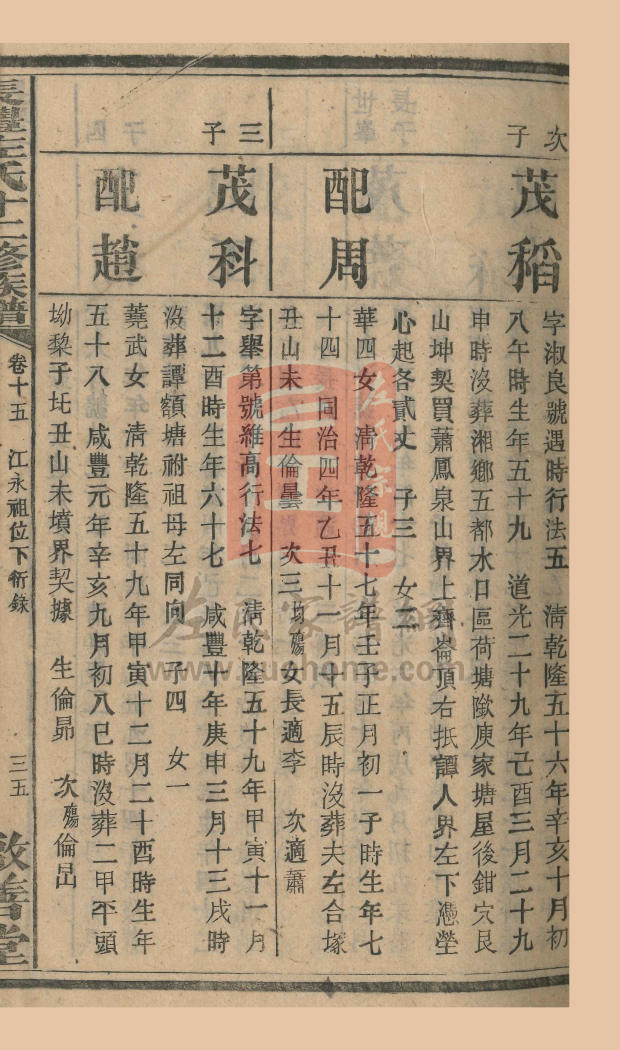 次子
茂稻
字淑良號遇時行法五 清乾隆五十六年辛亥十月初
八午時生年五十九 道光二十九年己酉三月二十九
申時沒葬湘鄉五都水口區荷塘歐庚家塘屋後鉗穴艮
山坤契買蕭鳳泉山界上齊崙頂右抵譚人界左下憑塋
心起各貳丈 子三 女二
配周
華四女 清乾隆五十七年壬子正月初一子時生年七
十四 同治四年乙丑十一月十五辰時沒葬夫左合塚
丑山未 生倫曇 次三均殤女長適李 次適蕭
三子
茂科
字舉第號維高行法七 清乾隆五十九年甲寅十一月
十二酉時生年六十七 咸豐十年庚申三月十三戌時
沒葬譚額塘祔祖母左同向 子四 女一
配趙
蕘武女 清乾隆五十九年甲寅十二月二十酉時生年
五十八 咸豐元年辛亥九月初八巳時沒葬二甲坪頭
坳棃子圫丑山未墳界契據 生倫昴 次殤倫岊
長豐左氏十二修族譜
卷十五 江永祖位下衍錄
三五
敦善堂
左氏宗親
左氏家譜網
www.zuohome.com